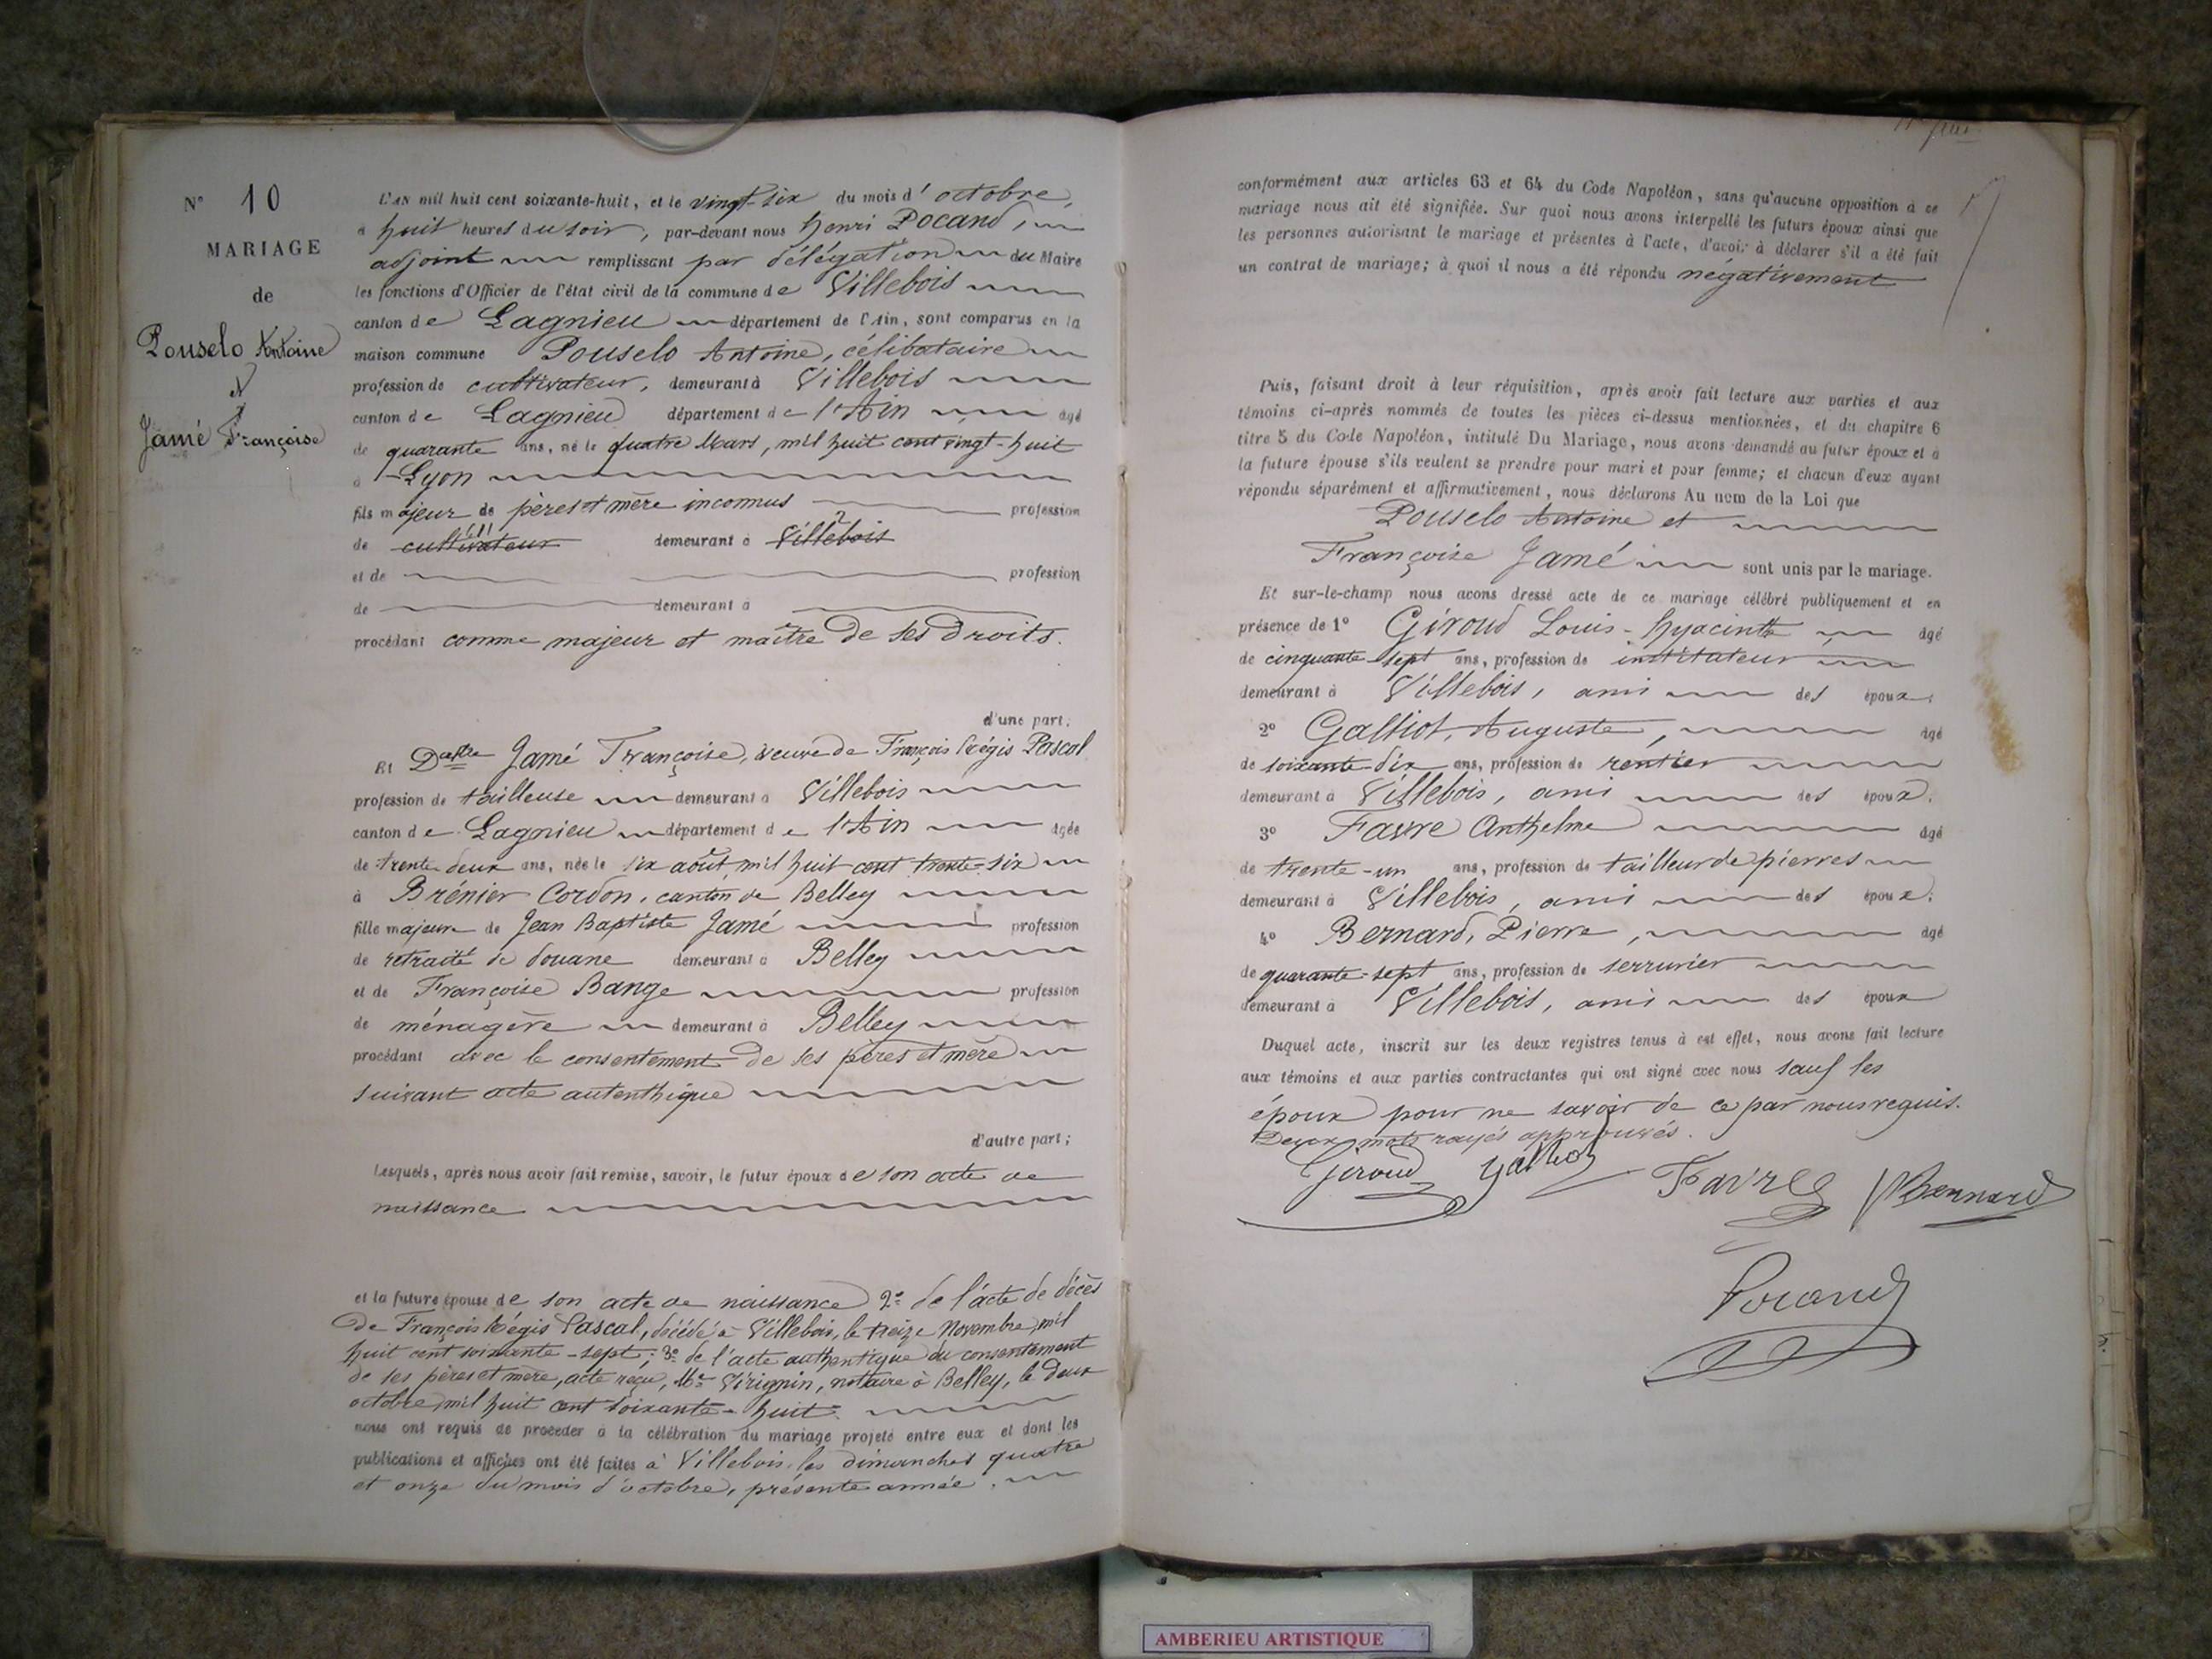 N° 10
MARIAGE
de
Pouselo Antoine
et
Jamé Françoise
L'AN mil huit cent soixante-huit, et le vingt-six du mois d'octobre,
à huit heures du soir, par-devant nous Henri Pocand,
adjoint remplissant par délégation du Maire
les fonctions d'Officier de l'état civil de la commune de Villebois
canton de Lagnieu département de l'Ain, sont comparus en la
maison commune Pouselo Antoine, célibataire
profession de cultivateur, demeurant à Villebois
canton de Lagnieu département de l'Ain âgé
de quarante ans, né le quatre Mars, mil huit cent vingt-huit
à Lyon
fils majeur de pères et mère inconnus profession
de cultivateur demeurant à Villebois
et de profession
de demeurant à
procédant comme majeur et maître de ses droits.
d'une part;
Et Jamé Françoise, veuve de François Régis Pascal
profession de tailleuse demeurant à Villebois
canton de Lagnieu département de l'Ain âgée
de trente-deux ans, née le six août, mil huit cent trente-six
à Brénier Cordon, canton de Belley
fille majeure de Jean Baptiste Jamé profession
de retraité de douane demeurant à Belley
et de Françoise Bange profession
de ménagère demeurant à Belley
procédant avec le consentement de ses pères et mère
suivant acte autenthique
d'autre part;
Lesquels, après nous avoir fait remise, savoir, le futur époux de son acte de
naissance
et la future épouse de son acte de naissance 2° de l'acte de décès
de François Régis Pascal, décédé à Villebois, le treize Novembre, mil
huit cent soixante-sept; 3° de l'acte authentique du consentement
de ses pères et mère, acte reçu, Me Virignin, notaire à Belley, le deux
octobre, mil huit cent soixante-huit.
nous ont requis de procéder à la célébration du mariage projeté entre eux et dont les
publications et affiches ont été faites à Villebois, les dimanches quatre
et onze du mois d'octobre, présente année.
conformément aux articles 63 et 64 du Code Napoléon, sans qu'aucune opposition à ce
mariage nous ait été signifiée. Sur quoi nous avons interpellé les futurs époux ainsi que
les personnes autorisant le mariage et présentes à l'acte, d'avoir à déclarer s'il a été fait
un contrat de mariage; à quoi il nous a été répondu négativement
Puis, faisant droit à leur réquisition, après avoir fait lecture aux parties et aux
témoins ci-après nommés de toutes les pièces ci-dessus mentionnées, et du chapitre 6
titre 5 du Code Napoléon, intitulé Du Mariage, nous avons demandé au futur époux et à
la future épouse s'ils veulent se prendre pour mari et pour femme; et chacun d'eux ayant
répondu séparément et affirmativement, nous déclarons Au nom de la Loi que
Pouselo Antoine et
Françoise Jamé sont unis par le mariage.
Et sur-le-champ nous avons dressé acte de ce mariage célébré publiquement et en
présence de 1° Giroud Louis-Hyacinthe âgé
de cinquante-sept ans, profession de instituteur
demeurant à Villebois, ami des époux;
2° Galliot, Auguste, âgé
de soixante-dix ans, profession de rentier
demeurant à Villebois, ami des époux;
3° Favre Anthelme âgé
de trente-un ans, profession de tailleur de pierres
demeurant à Villebois, ami des époux;
4° Bernard, Pierre, âgé
de quarante-sept ans, profession de serrurier
demeurant à Villebois, ami des époux
Duquel acte, inscrit sur les deux registres tenus à cet effet, nous avons fait lecture
aux témoins et aux parties contractantes qui ont signé avec nous sauf les
époux pour ne savoir de ce par nous requis.
Deux mots rayés approuvés.
Giroud Galliot Favre PBernard
Pocand
AMBERIEU ARTISTIQUE